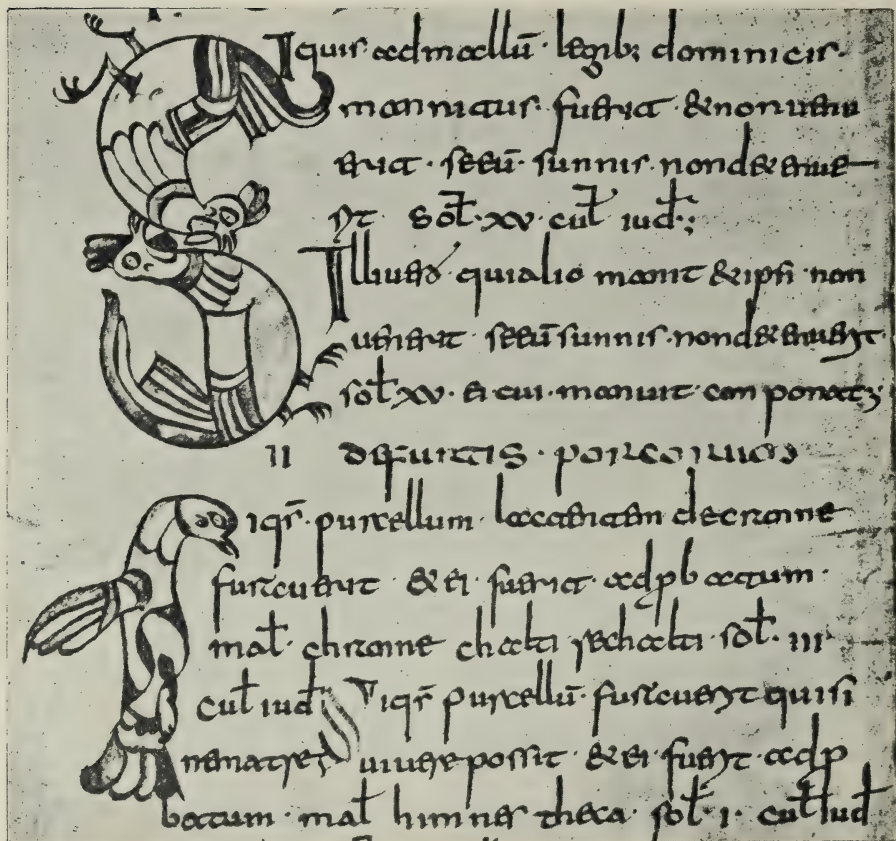 Siquis ad mallū · legibꝫ dominicis ·
mannitus · fuerit · & non uen
erit · seeū · sunnis · non d&enue
rit sot̄ · xv · cut̄ iud̄ ·;
Ille uero qui alio manit & ipsi · non
uenerit · seeū sunnis · non d&enuert ·
sot̄ xv · ei cui · manuit · con ponatꝫ
II de furtis · porcorum
Siqr̄ · purcellum · lactantem de cranne
furauerit & ei · fuerit · adp̱b atum ·
mat̄ · chranne chalti rechalti · sot̄ · III
cut̄ iud̄ Siqr̄ purcellū · furauert qui si
ne matre uiuere possit · & ei · fuert · adp̱
batum · mat̄ himnes theca · sot̄ · I · cut̄ iud̄